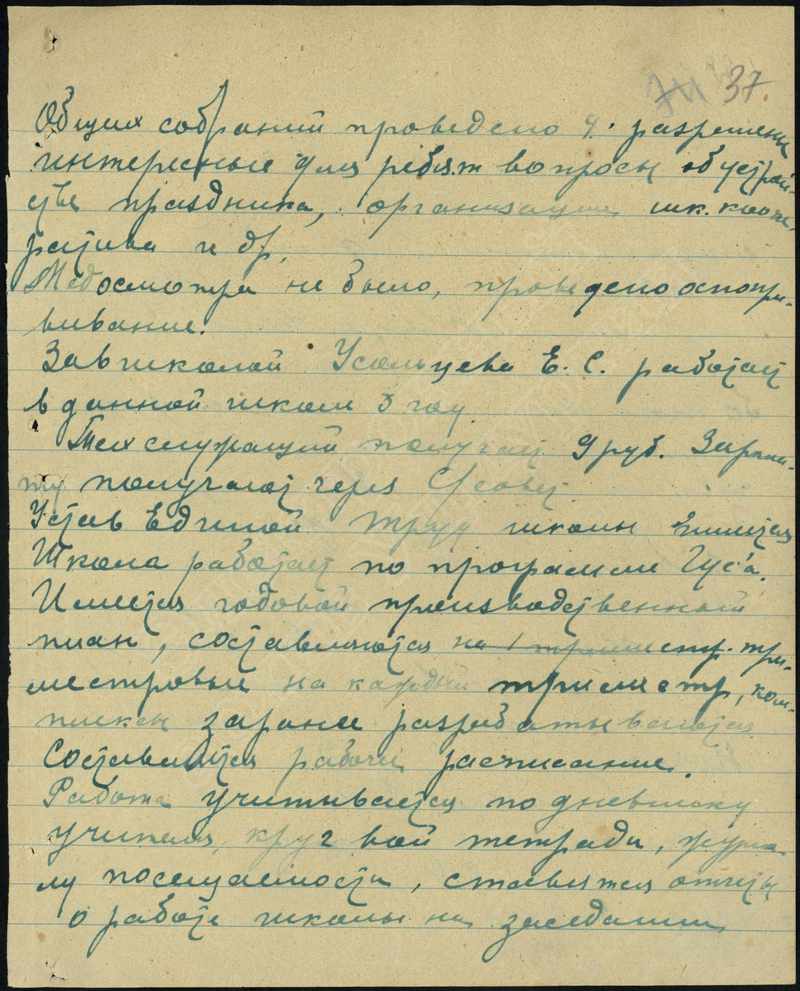 37.
Общих собраний проведено 4. разрешены
интересные для ребят вопросы об устрой-
стве праздника, организации шк. коопе
ратива и др.
Медосмотра не было, проведено оспопри-
вивание.
Завшколой Усольцева Е. С. работает
в данной школе 3 год
Техслужащий получает 9 руб. Зарпла-
ту получают через С/совет.
Устав Единой Труд школы имеется
Школа работает по программе Гус'а.
Имеется годовой производственный
план, составляются на 1 триместр. три-
местровые на каждый триместр, ком-
плексы заранее разрабатываются
Составляется рабочее расписание.
Работа учитывается по дневнику
учителя, круговой тетради, журна
лу посещаемости, ставятся отчеты
о работе школы на заседании